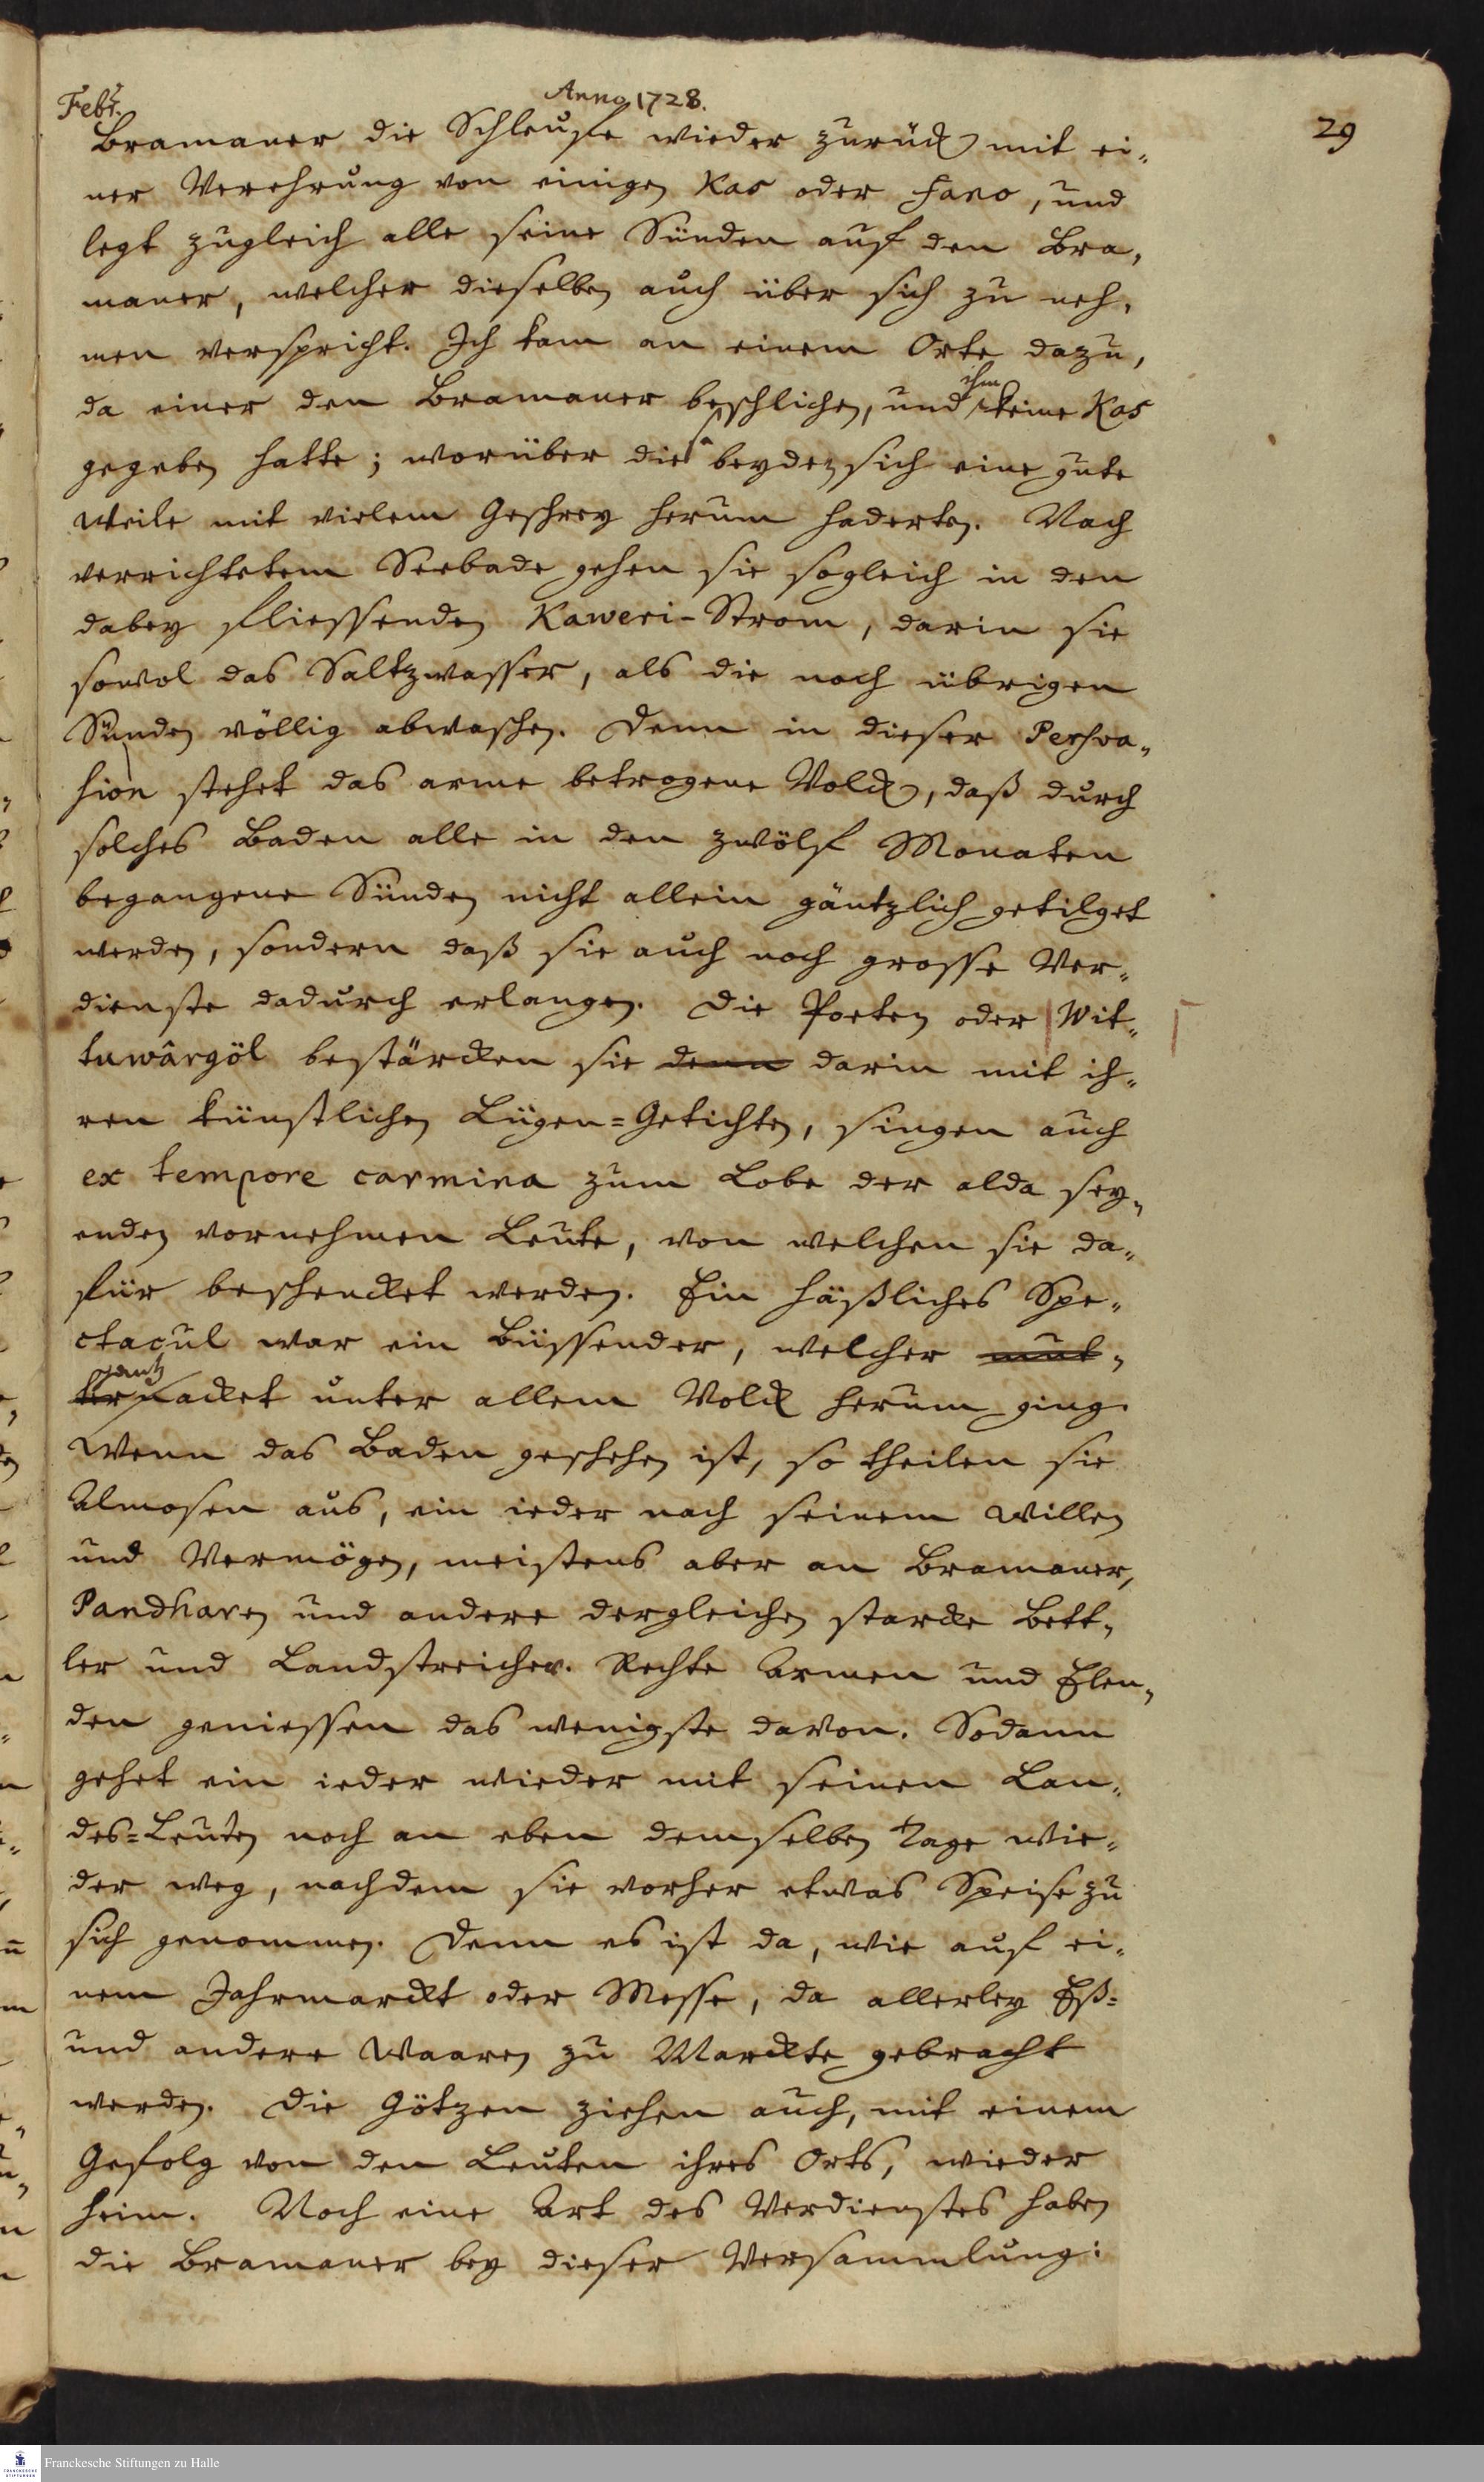 Febr.
Anno 1728.
29
Bramaner die Schleuffe wieder zurück mit ei-
ner Verehrung von einigen Kas oder Fano, und
legt zugleich alle seine Sünden auf den Bra-
maner, welcher dieselben auch über sich zu neh-
men verspricht. Ich kam an einem Orte dazu,
da einer den Bramaner beschlichen, und ihm keine Kas
gegeben hatte; worüber die beyden sich eine gute
Weile mit vielem Geschrey herum haderten. Nach
verrichtetem Seebade gehen sie sogleich in den
dabey fliessenden Kaweri-Strom, darin sie
sowol das Saltzwasser, als die noch übrigen
Sünden völlig abwaschen. Denn in dieser Persva-
sion stehet das arme betrogene Volck, daß durch
solches Baden alle in den zwölf Monaten
begangene Sünden nicht allein gäntzlich getilget
werden, sondern daß sie auch noch grosse Ver-
dienste dadurch erlangen. Die Poeten oder Wit-
tuwârgöl bestärcken sie denn darin mit ih-
ren künstlichen Lügen=Getichten, singen auch
ex tempore carmina zum Lobe der alda sey-
enden vornehmen Leute, von welchen sie da-
für beschencket werden. Ein häßliches Spe-
ctacul war ein Büssender, welcher mut-
ter gantz nacket unter allem Volck herum ging.
Wenn das Baden geschehen ist, so theilen sie
Almosen aus, ein ieder nach seinem Willen
und Vermögen, meistens aber an Bramaner,
Pandharen und andere dergleichen starcke Bett-
ler und Landstreicher. Rechte Armen und Elen-
den geniessen das wenigste davon. Sodann
gehet ein ieder wieder mit seinen Lan-
des=Leuten noch an eben demselben Tage wie-
der weg, nachdem sie vorher etwas Speise zu
sich genommen. Denn es ist da, wie auf ei-
nem Jahrmarckt oder Messe, da allerley Eß=
und andere Waaren zu Marckte gebracht
werden. Die Götzen ziehen auch, mit einem
Gefolg von den Leuten ihres Orts, wieder
heim. Noch eine Art des Verdienstes haben
die Bramaner bey dieser Versammlung:
Franckesche Stiftungen zu Halle